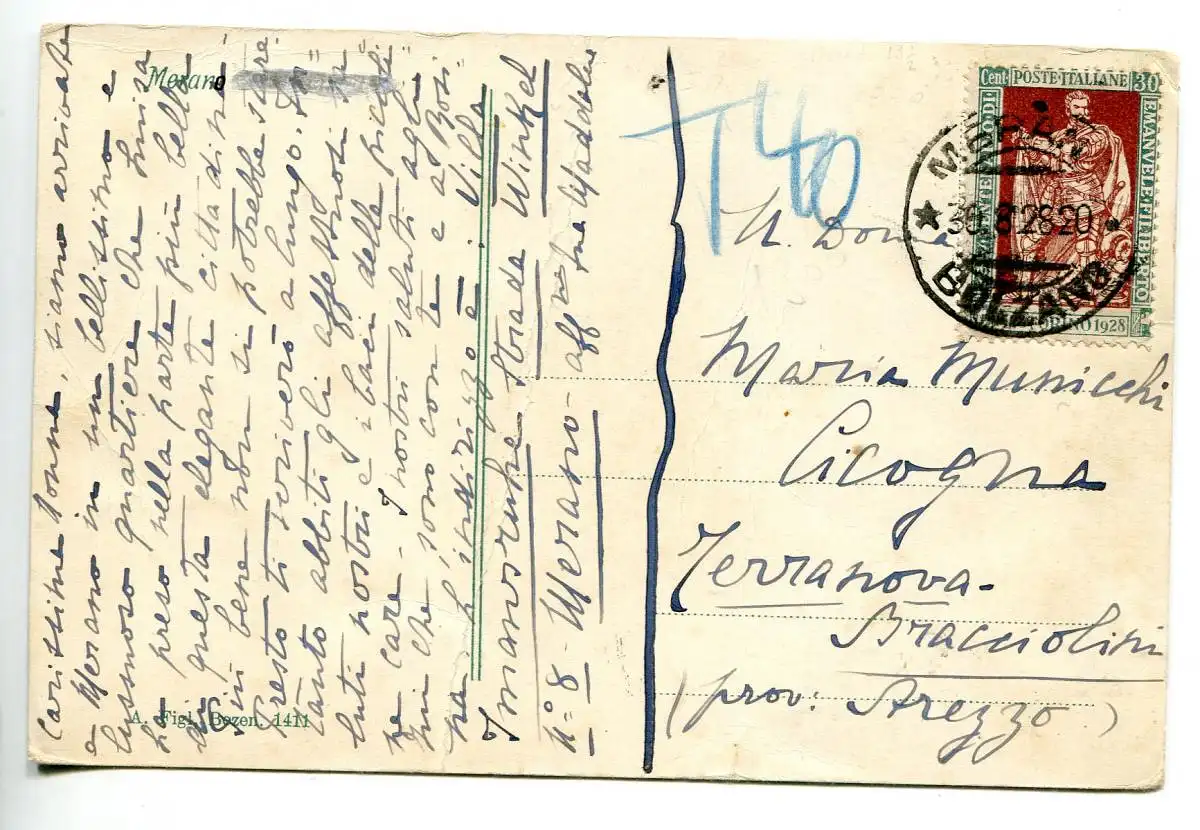 Carissime Nonne, siamo arrivate
a Merano in un bellissimo e
lussuoso quartiere che Luisa
ha preso nella parte più bella
di questa elegante città dine
più bene non si potrebbe stare.
Presto ti scriverò a lungo.
tanto abbiti gli affettuosi sa=
luti nostri e i baci delle piccoli=
ne care - I nostri saluti agli
zii che sono con te e a Bosi
na L'indirizzo è: Villa
Imansruhe Strada Winkel
n.° 8 - Merano - aff ma tua Maddalena
Merano
A. Figl, Bozen. 1411
T 40
N. Donna
Maria Municchi
Cicogna
Terranova-
Bracciolini
(prov: Arezzo)
Cent POSTE·ITALIANE 30
EMANVELE·FILIBERTO
TORINO 1928
MERANO
30.8.28 20
BOLZANO